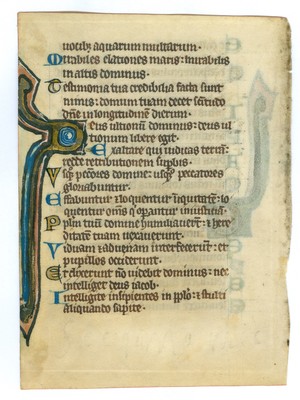 uocibꝫ aquarum multarum·
Mirabiles elationes maris: mirabilis
in altis dominus·
Testimonia tua credibilia facta sunt
nimis: domum tuam decet sc̄itudo
dn̄e in longitudinē dierum·
Deus ultionum dominus: deus ul
tionum libere egit·
Exaltare qui iudicas terrā:
redde retributionem supbis·
Usqꝫ pctōres domine: usqꝫ peccatores
gloriabuntur·
Effabuntur ⁊ loquentur iniquitatē: lo
quentur om̄s q̇ opantur iniusticiā·
Pplm̄ tuū domine humiliauerūt: ⁊ here
ditatē tuam uexauerunt·
Uiduam ⁊ aduenam interfecerūt: et
pupillos occiderunt·
Et dixerunt nō uidebit dominus: nec
intelliget deus iacob·
Intelligite insipientes in pplo: ⁊ stulti
aliquando sapite·